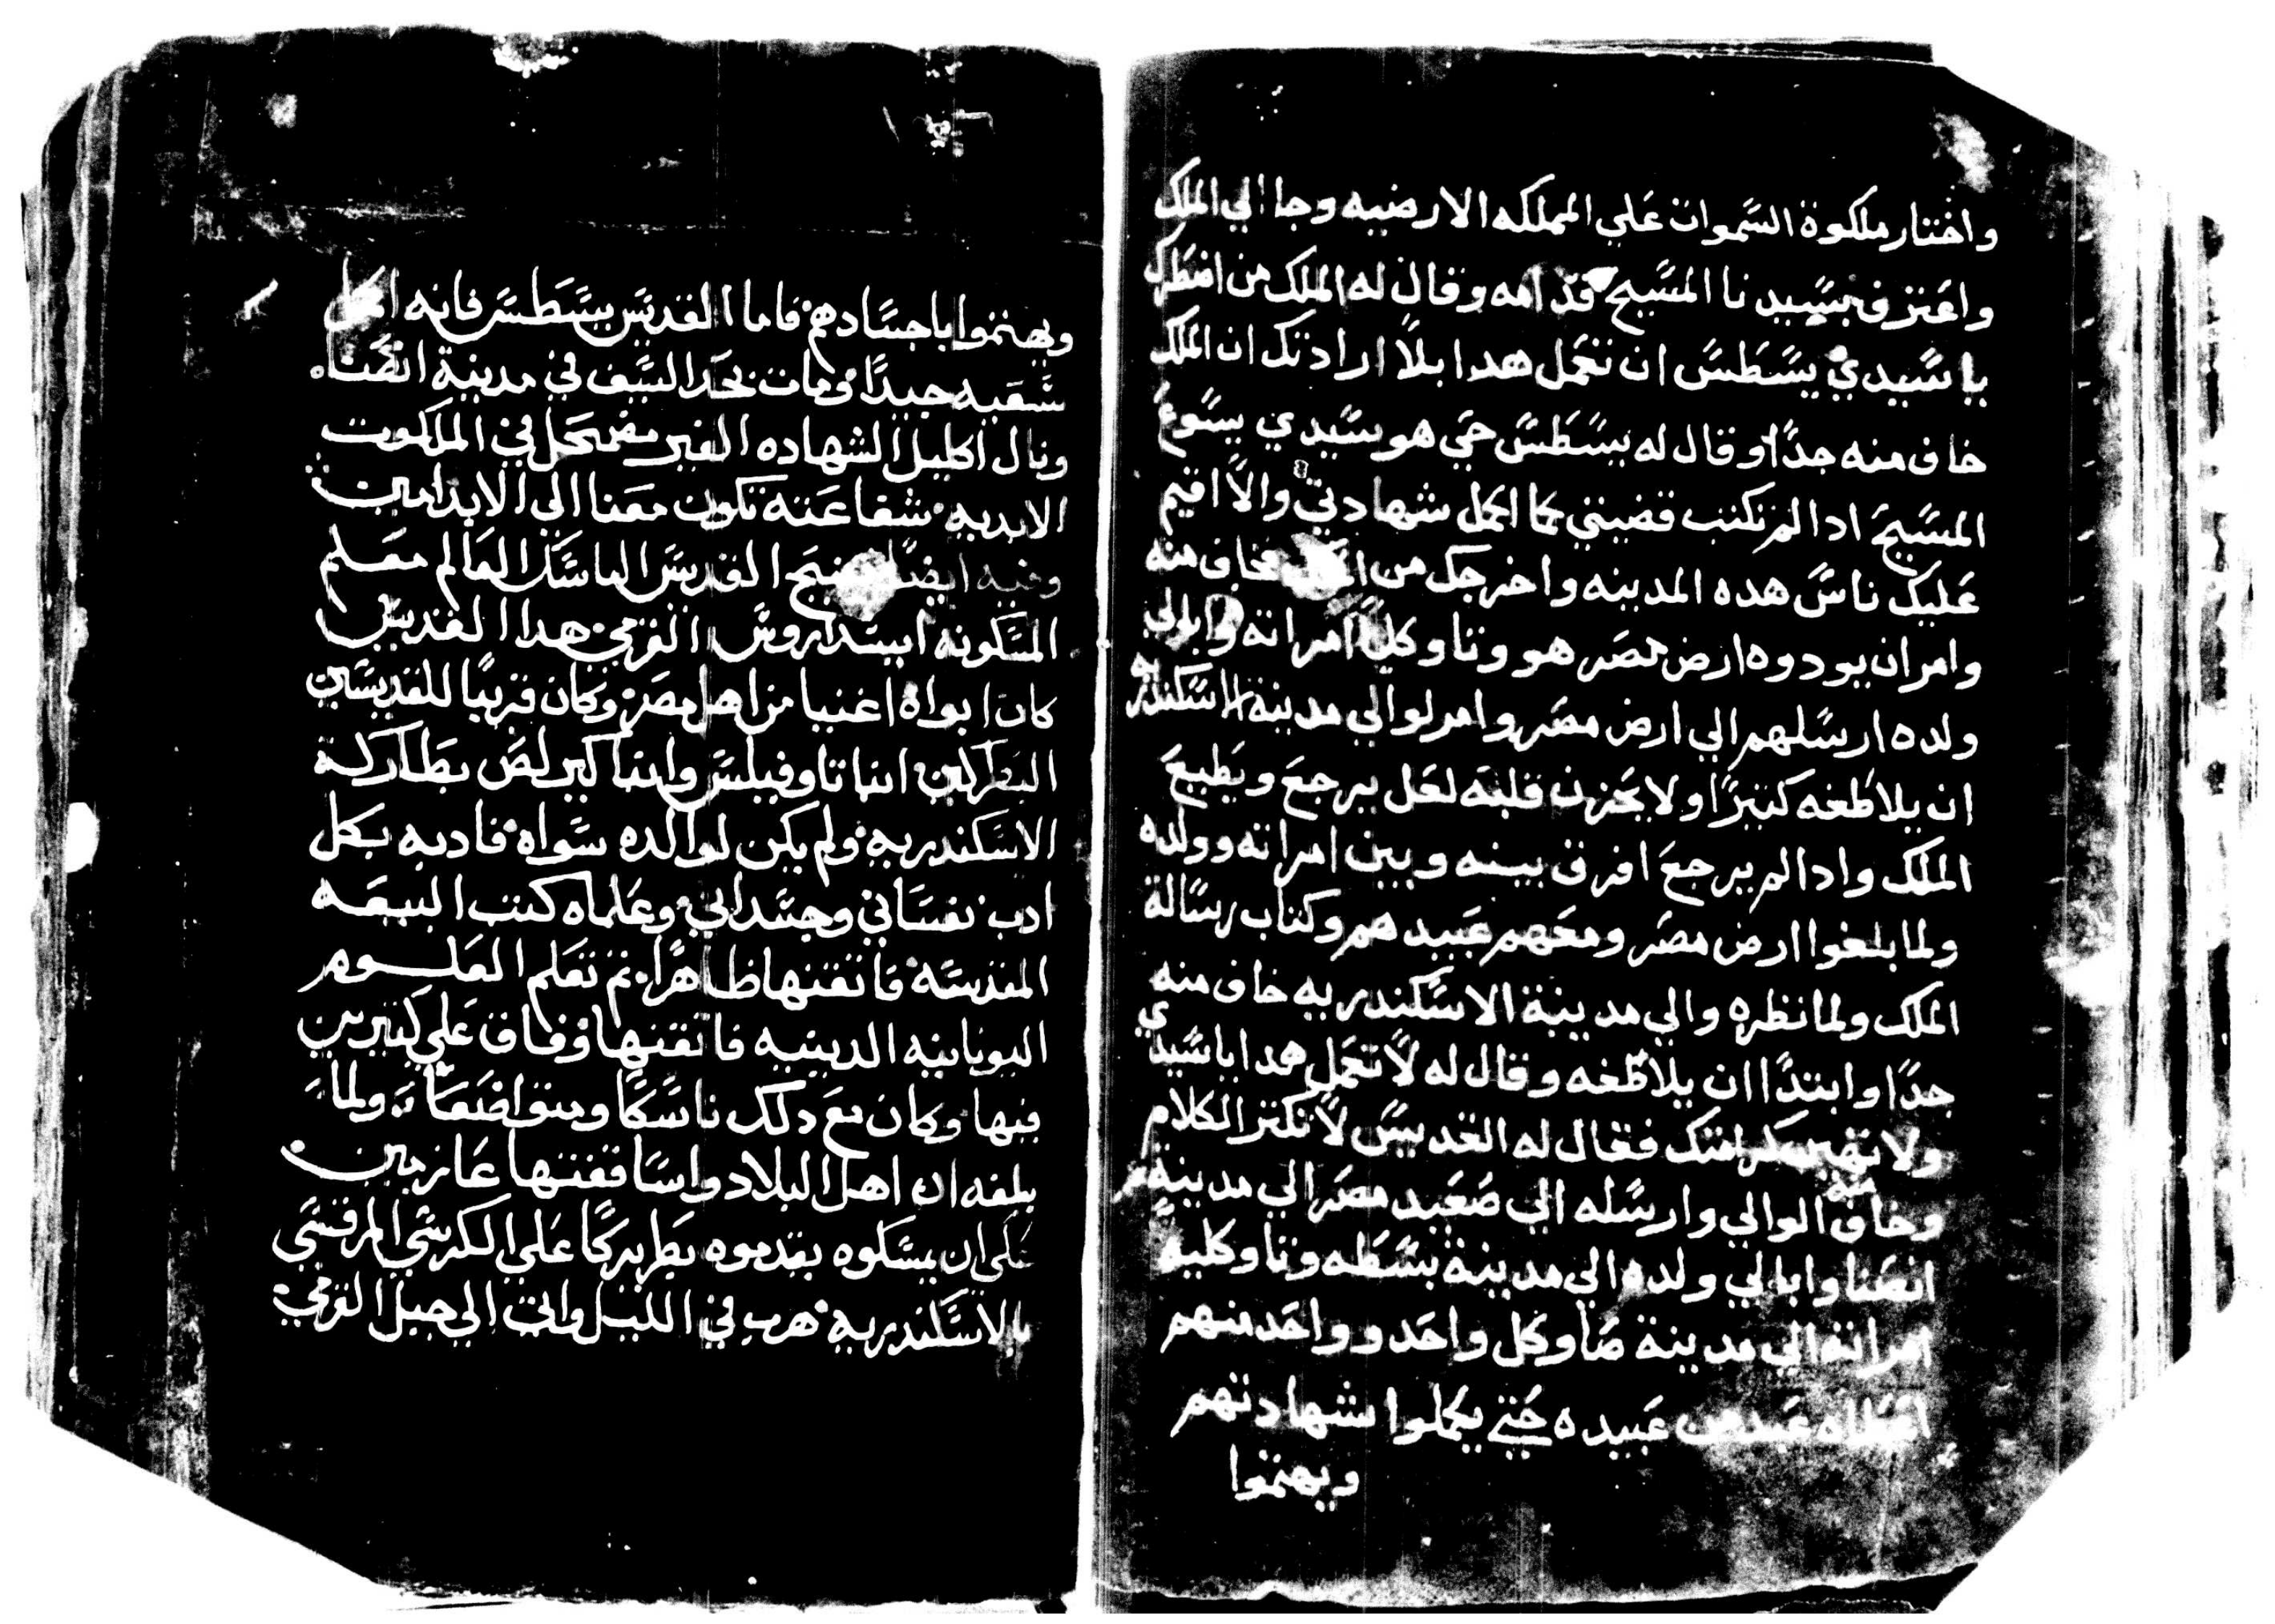 واختار ملكوة السموات علي المملكه الارضيه وجا الي الملك
واعترف بسيدنا المسيح قدامه وقال له الملك من اضطرك
يا سيدي يسطس ان تعمل هدا بلا ارادتك ان الملك
خاف منه جدا وقال له يسطس حي هو سيدي يسوع
المسيح ادا لم تكتب قضيتي كما اكمل شهادتي والا اقيم
عليك ناس هده المدينه واخرجك من فخاف منه
وامر ان يودوه ارض مصر هو وتاوكليا امراته وابالي
ولده ارسلهم الي ارض مصر وامر لوالي مدينة الاسكندريه
ان يلاطفه كتيرا ولا يحزن قلبه لعل يرجع ويطيع
الملك وادا لم يرجع افرق بينه وبين امراته وولده
ولما بلغوا ارض مصر ومعهم عبيدهم وكتاب رسالة
الملك ولما نظره والي مدينة الاسكندريه خاف منه
جدا وابتدا ان يلاطفه وقال له لا تعمل هدا يا سيدي
ولا تهين كرامتك فقال له القديس لا تكتر الكلام
وخاف منه الوالي وارسله الي صعيد مصر الي مدينة
انصنا وابالي ولده الي مدينة بسطه وتاوكليه
امراته الي مدينة صا وكل واحد وواحد منهم
اعطاه عبد من عبيده حتي يكملوا شهادتهم
ويهتموا
ويهتموا باجسادهم فاما القديس يسطس فانه اكمل
سعيه جيدا ومات بحد السيف في مدينة انصنا
ونال اكليل الشهاده الغير مضمحل في الملكوت
الابديه شفاعته تكون معنا الي الابد امين
وفيه ايضا تنيح القديس الناسك العالم معلم
المسكونه ابيسداروس الفرمي هدا القديس
كان ابواه اغنيا من اهل مصر وكان قريبا للقديسين
البطركين انبا تاوفيلس وانبا كيرلص بطاركة
الاسكندريه ولم يكن لوالده سواه فادبه بكل
ادب نفساني وجسداني وعلماه كتب البيعه
المقدسه فاتقنها ظاهرا تم تعلم العلوم
اليونانيه الدينيه فاتقنها وفاق علي كتيرين
فيها وكان مع دلك ناسكا ومتواضعا ولما
بلغه ان اهل البلاد واساقفتها عازمين
علي ان يمسكوه يقدموه بطريركا علي الكرسي المرقسي
بالاسكندريه هرب في الليل واتي الي جبل الفرمي